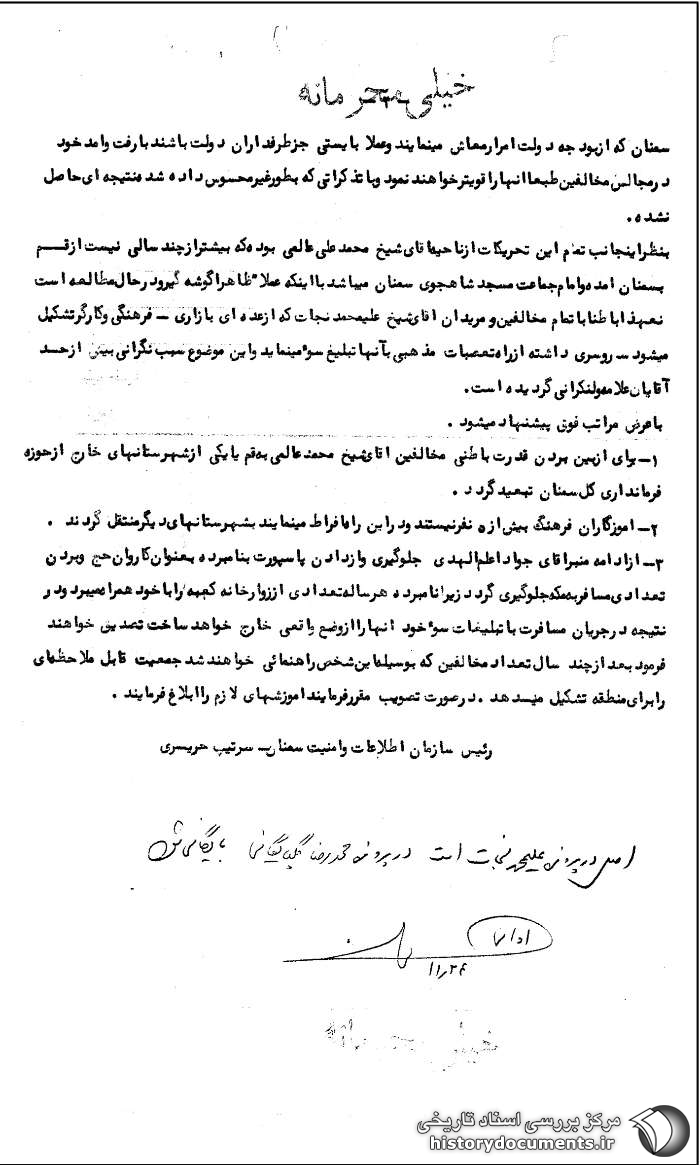 خیلی محرمانه
سمنان که ازبودجه دولت امرارمعاش مینمایند وعملا بایستی جزطرفداران دولت باشند بارفت وامد خود
درمجالس مخالفین طبعا انهارا قویترخواهند نمود وبا تذکراتی که بطورغیرمحسوس داده شده نتیجه ای حاصل
نشده .
بنظراینجانب تمام این تحریکات ازناحیه اقای شیخ محمد علی عالمی بوده که بیشترازچند سالی نیست ازقم
بسمنان امده وامام جماعت مسجد شاهجوی سمنان میباشد بااینکه عملا ظاهرا گوشه گیرودرحال مطالعه است
باطنا باتمام مخالفین ومریدان اقای شیخ علیمحمد نجات که ازعده ای بازاری - فرهنگی وکارگرتشکیل
میشود سروسری داشته ازراه تعصبات مذهبی بآنها تبلیغ سوء مینماید واین موضوع سبب نگرانی بیش ازحد
آقایان علامه ولنکرانی گردیده است.
باعرض مراتب فوق پیشنهاد میشود .
۱- برای ازبین بردن قدرت باطنی مخالفین اقای شیخ محمد عالمی به قم یا یکی ازشهرستانهای خارج ازحوزه
فرمانداری کل سمنان تبعید گردد .
۲- اموزگاران فرهنگ بیش از ۵ نفرنیستند ودراین راه افراط مینمایند بشهرستانهای دیگرمنتقل گردند .
۳- ازادامه منبراقای جواد اعلم الهدی جلوگیری وازدادن پاسپورت بنامبرده بعنوان کاروان حج وبردن
تعدادی مسافربه مکه جلوگیری گردد زیرا نامبرده هرساله تعدادی اززوارخانه کعبه را باخود همراه میبرد ودر
نتیجه درجریان مسافرت با تبلیغات سوء خود انهارا ازوضع واقعی خارج خواهد ساخت تصدیق خواهند
فرمود بعد ازچند سال تعداد مخالفین که بوسیله این شخص راهنمائی خواهند شد جمعیت قابل ملاحظه ای
را برای منطقه تشکیل میدهد . درصورت تصویب مقررفرمایند اموزشهای لازم را ابلاغ فرمایند .
رئیس سازمان اطلاعات وامنیت سمنان - سرتیپ حریری
اصل در پرونده علیمحمد نجات است در پرونده محمد رضا گلپایگانی بایگانی شود
۱۱٫۲۶
خیلی محرمانه
مرکز بررسی اسناد تاریخی
historydocuments.ir